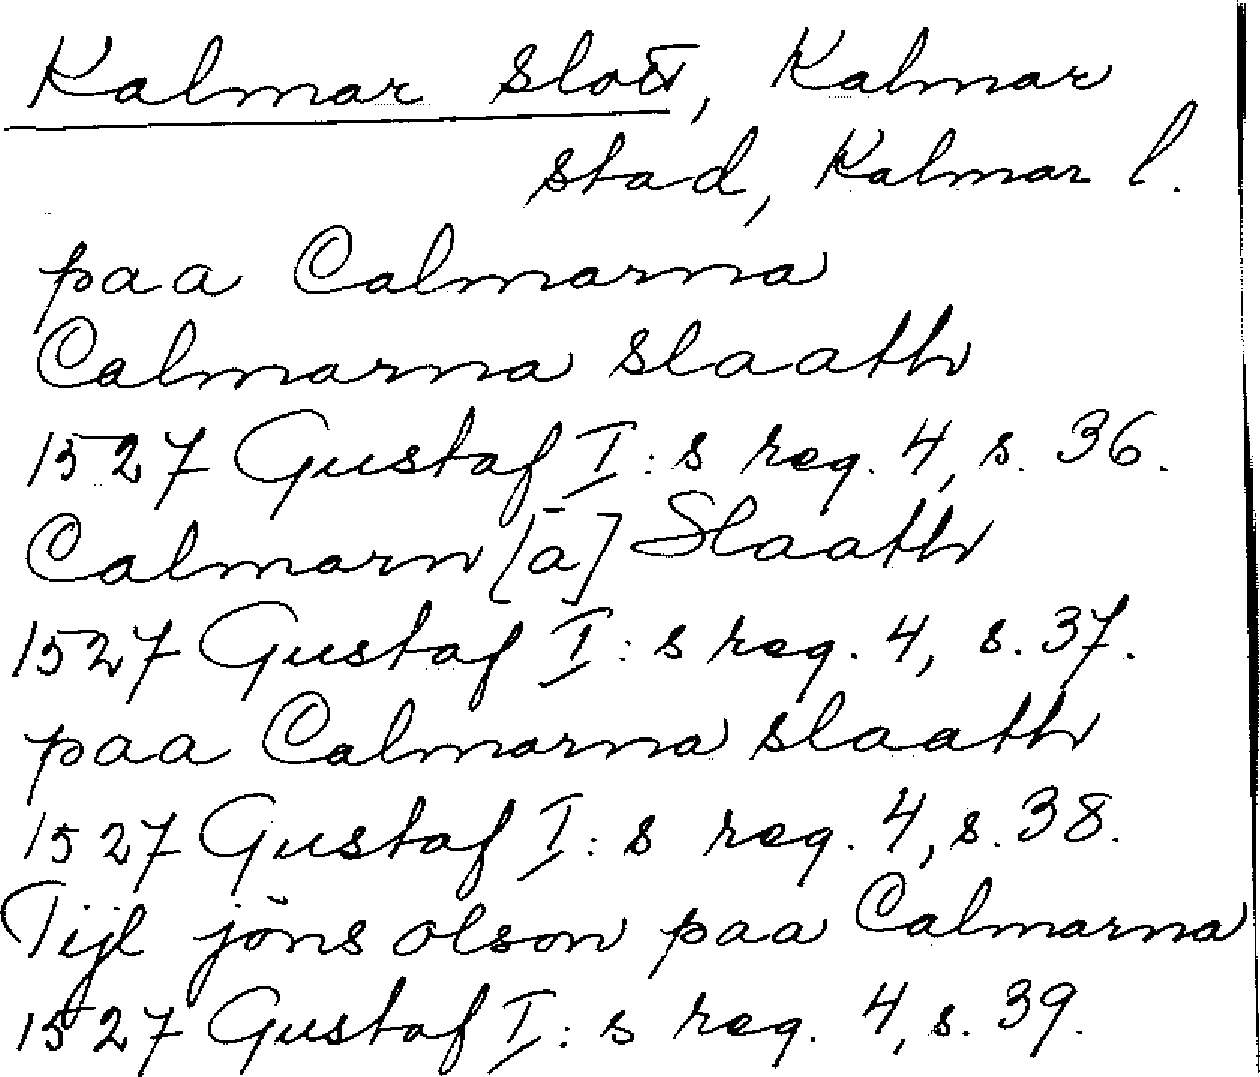 Kalmar slott, Kalmar
stad, Kalmar l.
paa Calmarna
Calmarna slaath
1527 Gustaf I:s reg. 4, s. 36.
Calmarn [a] Slaath
1527 Gustaf I:s reg. 4, s. 37.
paa Calmarna slaath
1527 Gustaf I:s reg. 4, s. 38.
Tijl jöns olson paa Calmarna
1527 Gustaf I:s reg. 4, s. 39.